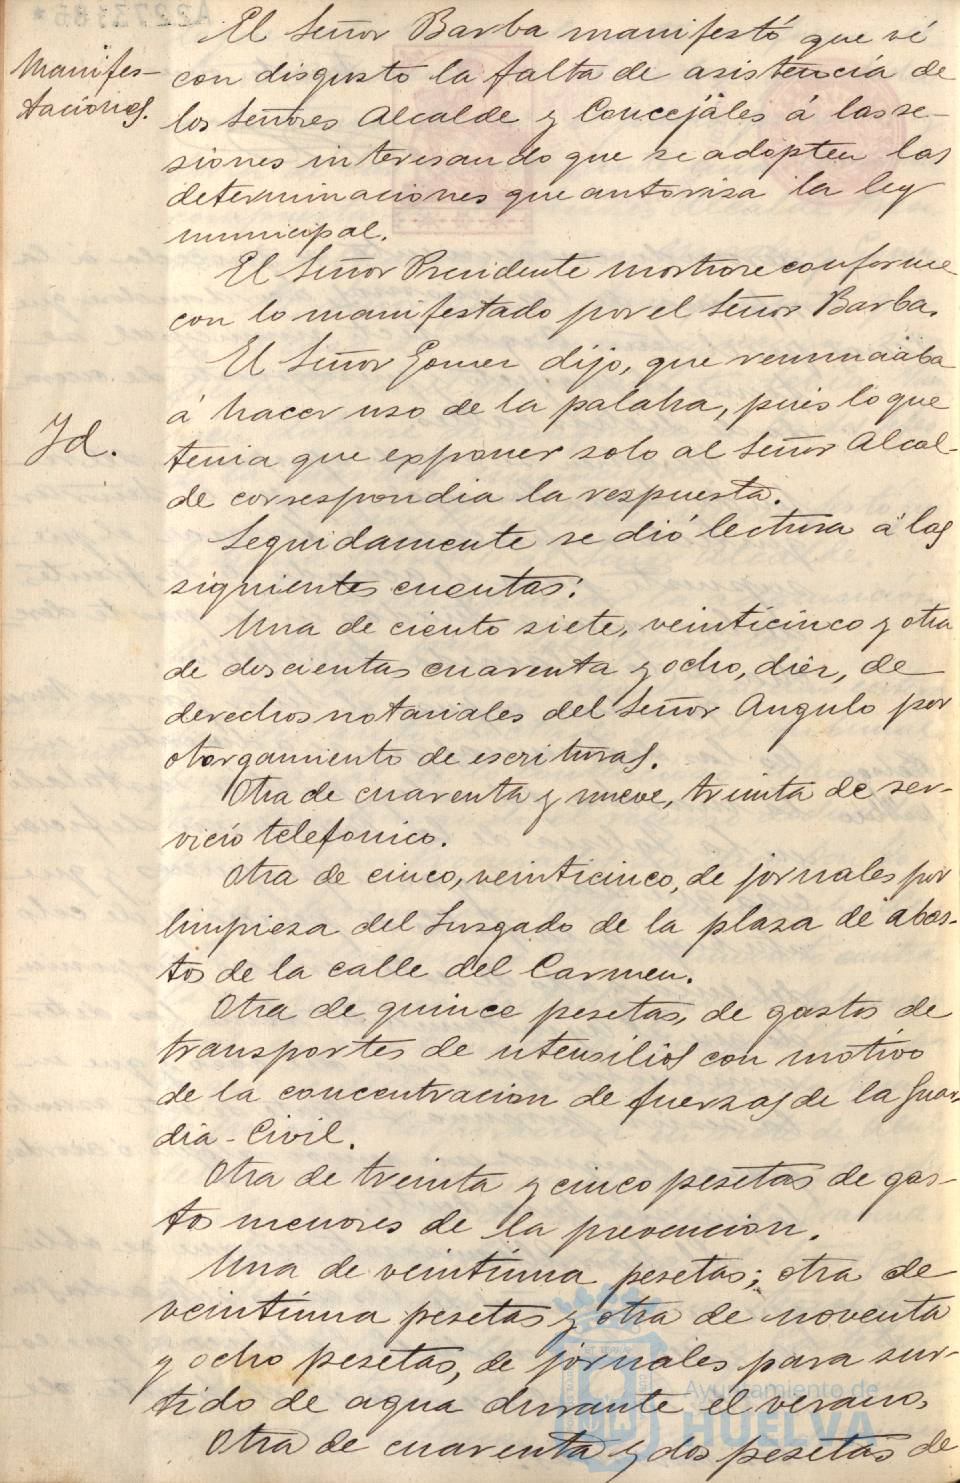 A2273185*
El Señor Barba manifestó que vé
Manifes-
con disgusto la falta de asistencia de
taciones.
los Señores Alcalde y Concejales á las se-
siones interesando que se adopten las
determinaciones que autoriza la ley
municipal.
El Señor Presidente mostrose conforme
con lo manifestado por el Señor Barba.
El Señor Gomez dijo, que renunciaba
á hacer uso de la palabra, pues lo que
Id.
tenia que exponer solo al Señor Alcal-
de correspondia la respuesta.
Seguidamente se dió lectura á las
siguientes cuentas:
Una de ciento siete, veinticinco y otra
de doscientas cuarenta y ocho, diez, de
derechos notariales del Señor Angulo por
otorgamiento de escrituras.
Otra de cuarenta y nueve, treinta de ser-
vicio telefonico.
Otra de cinco, veinticinco, de jornales por
limpieza del Juzgado de la plaza de abas-
tos de la calle del Carmen.
Otra de quince pesetas, de gastos de
transportes de utensilios con motivo
de la concentracion de fuerzas de la Guar-
dia-Civil.
Otra de treinta y cinco pesetas de gas-
tos menores de la prevencion.
Una de veintiuna pesetas; otra de
veintiuna pesetas y otra de noventa
y ocho pesetas, de jornales para sur-
tido de agua durante el verano.
Otra de cuarenta y dos pesetas de
Ayuntamiento de
HUELVA